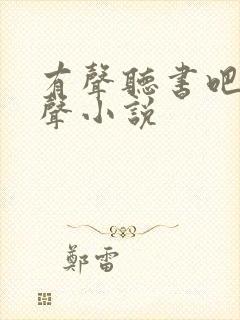 有聲聽書吧
聲小説
鄭雷